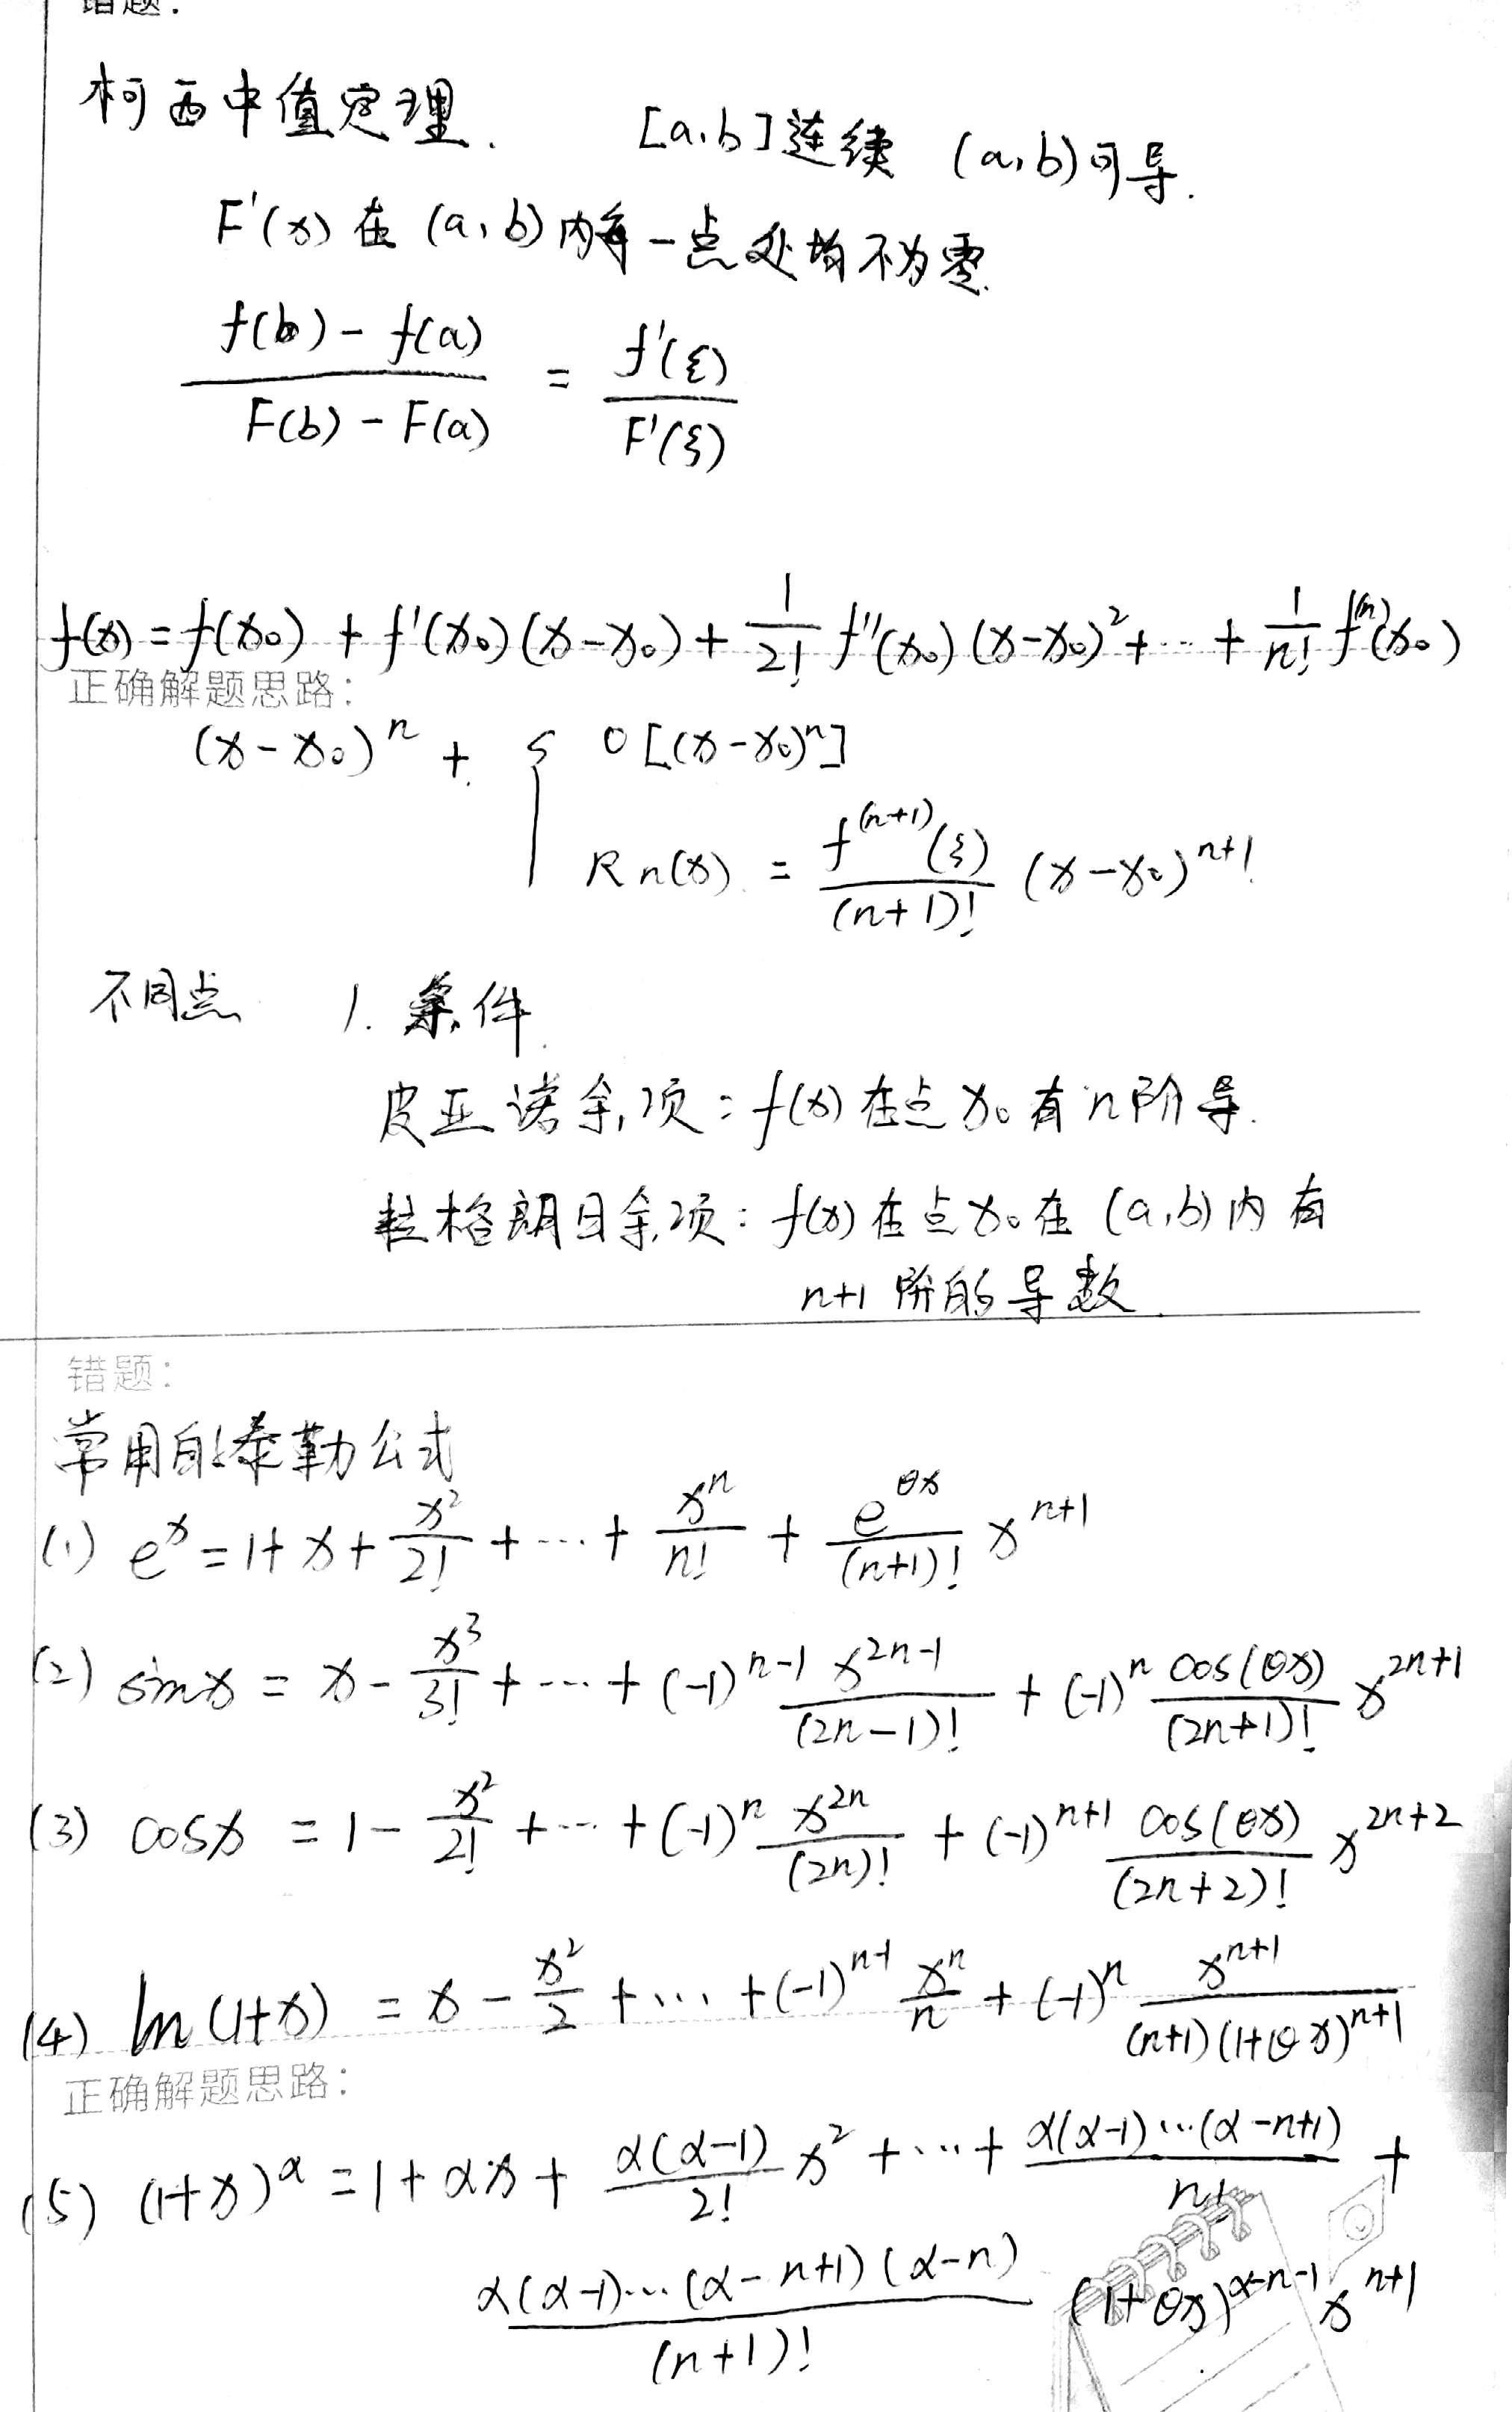 错题:
柯西中值定理. [a,b]连续 (a,b)可导.
F'(x) 在 (a,b) 内每一点处均不为零.
\frac{f(b)-f(a)}{F(b)-F(a)} = \frac{f'(ξ)}{F'(ξ)}
f(x) = f(x₀) + f'(x₀)(x-x₀) + \frac{1}{2!} f''(x₀)(x-x₀)² + ··· + \frac{1}{n!} f^{(n)}(x₀)
正确解题思路:
(x-x₀)^n + { o[(x-x₀)^n]
R_n(x) = \frac{f^{(n+1)}(ξ)}{(n+1)!} (x-x₀)^{n+1}
不同点 1. 条件.
皮亚诺余项: f(x) 在点 x₀ 有 n 阶导.
拉格朗日余项: f(x) 在点 x₀ 在 (a,b) 内有
n+1 阶的导数.
错题:
常用的泰勒公式
(1) e^x = 1 + x + \frac{x²}{2!} + ··· + \frac{x^n}{n!} + \frac{e^{θx}}{(n+1)!} x^{n+1}
(2) sinx = x - \frac{x³}{3!} + ··· + (-1)^{n-1} \frac{x^{2n-1}}{(2n-1)!} + (-1)^n \frac{cos(θx)}{(2n+1)!} x^{2n+1}
(3) cosx = 1 - \frac{x²}{2!} + ··· + (-1)^n \frac{x^{2n}}{(2n)!} + (-1)^{n+1} \frac{cos(θx)}{(2n+2)!} x^{2n+2}
(4) ln(1+x) = x - \frac{x²}{2} + ··· + (-1)^{n-1} \frac{x^n}{n} + (-1)^n \frac{x^{n+1}}{(n+1)(1+θx)^{n+1}}
正确解题思路:
(5) (1+x)^α = 1 + αx + \frac{α(α-1)}{2!} x² + ··· + \frac{α(α-1)···(α-n+1)}{n!} +
\frac{α(α-1)···(α-n+1)(α-n)}{(n+1)!} (1+θx)^{α-n-1} x^{n+1}